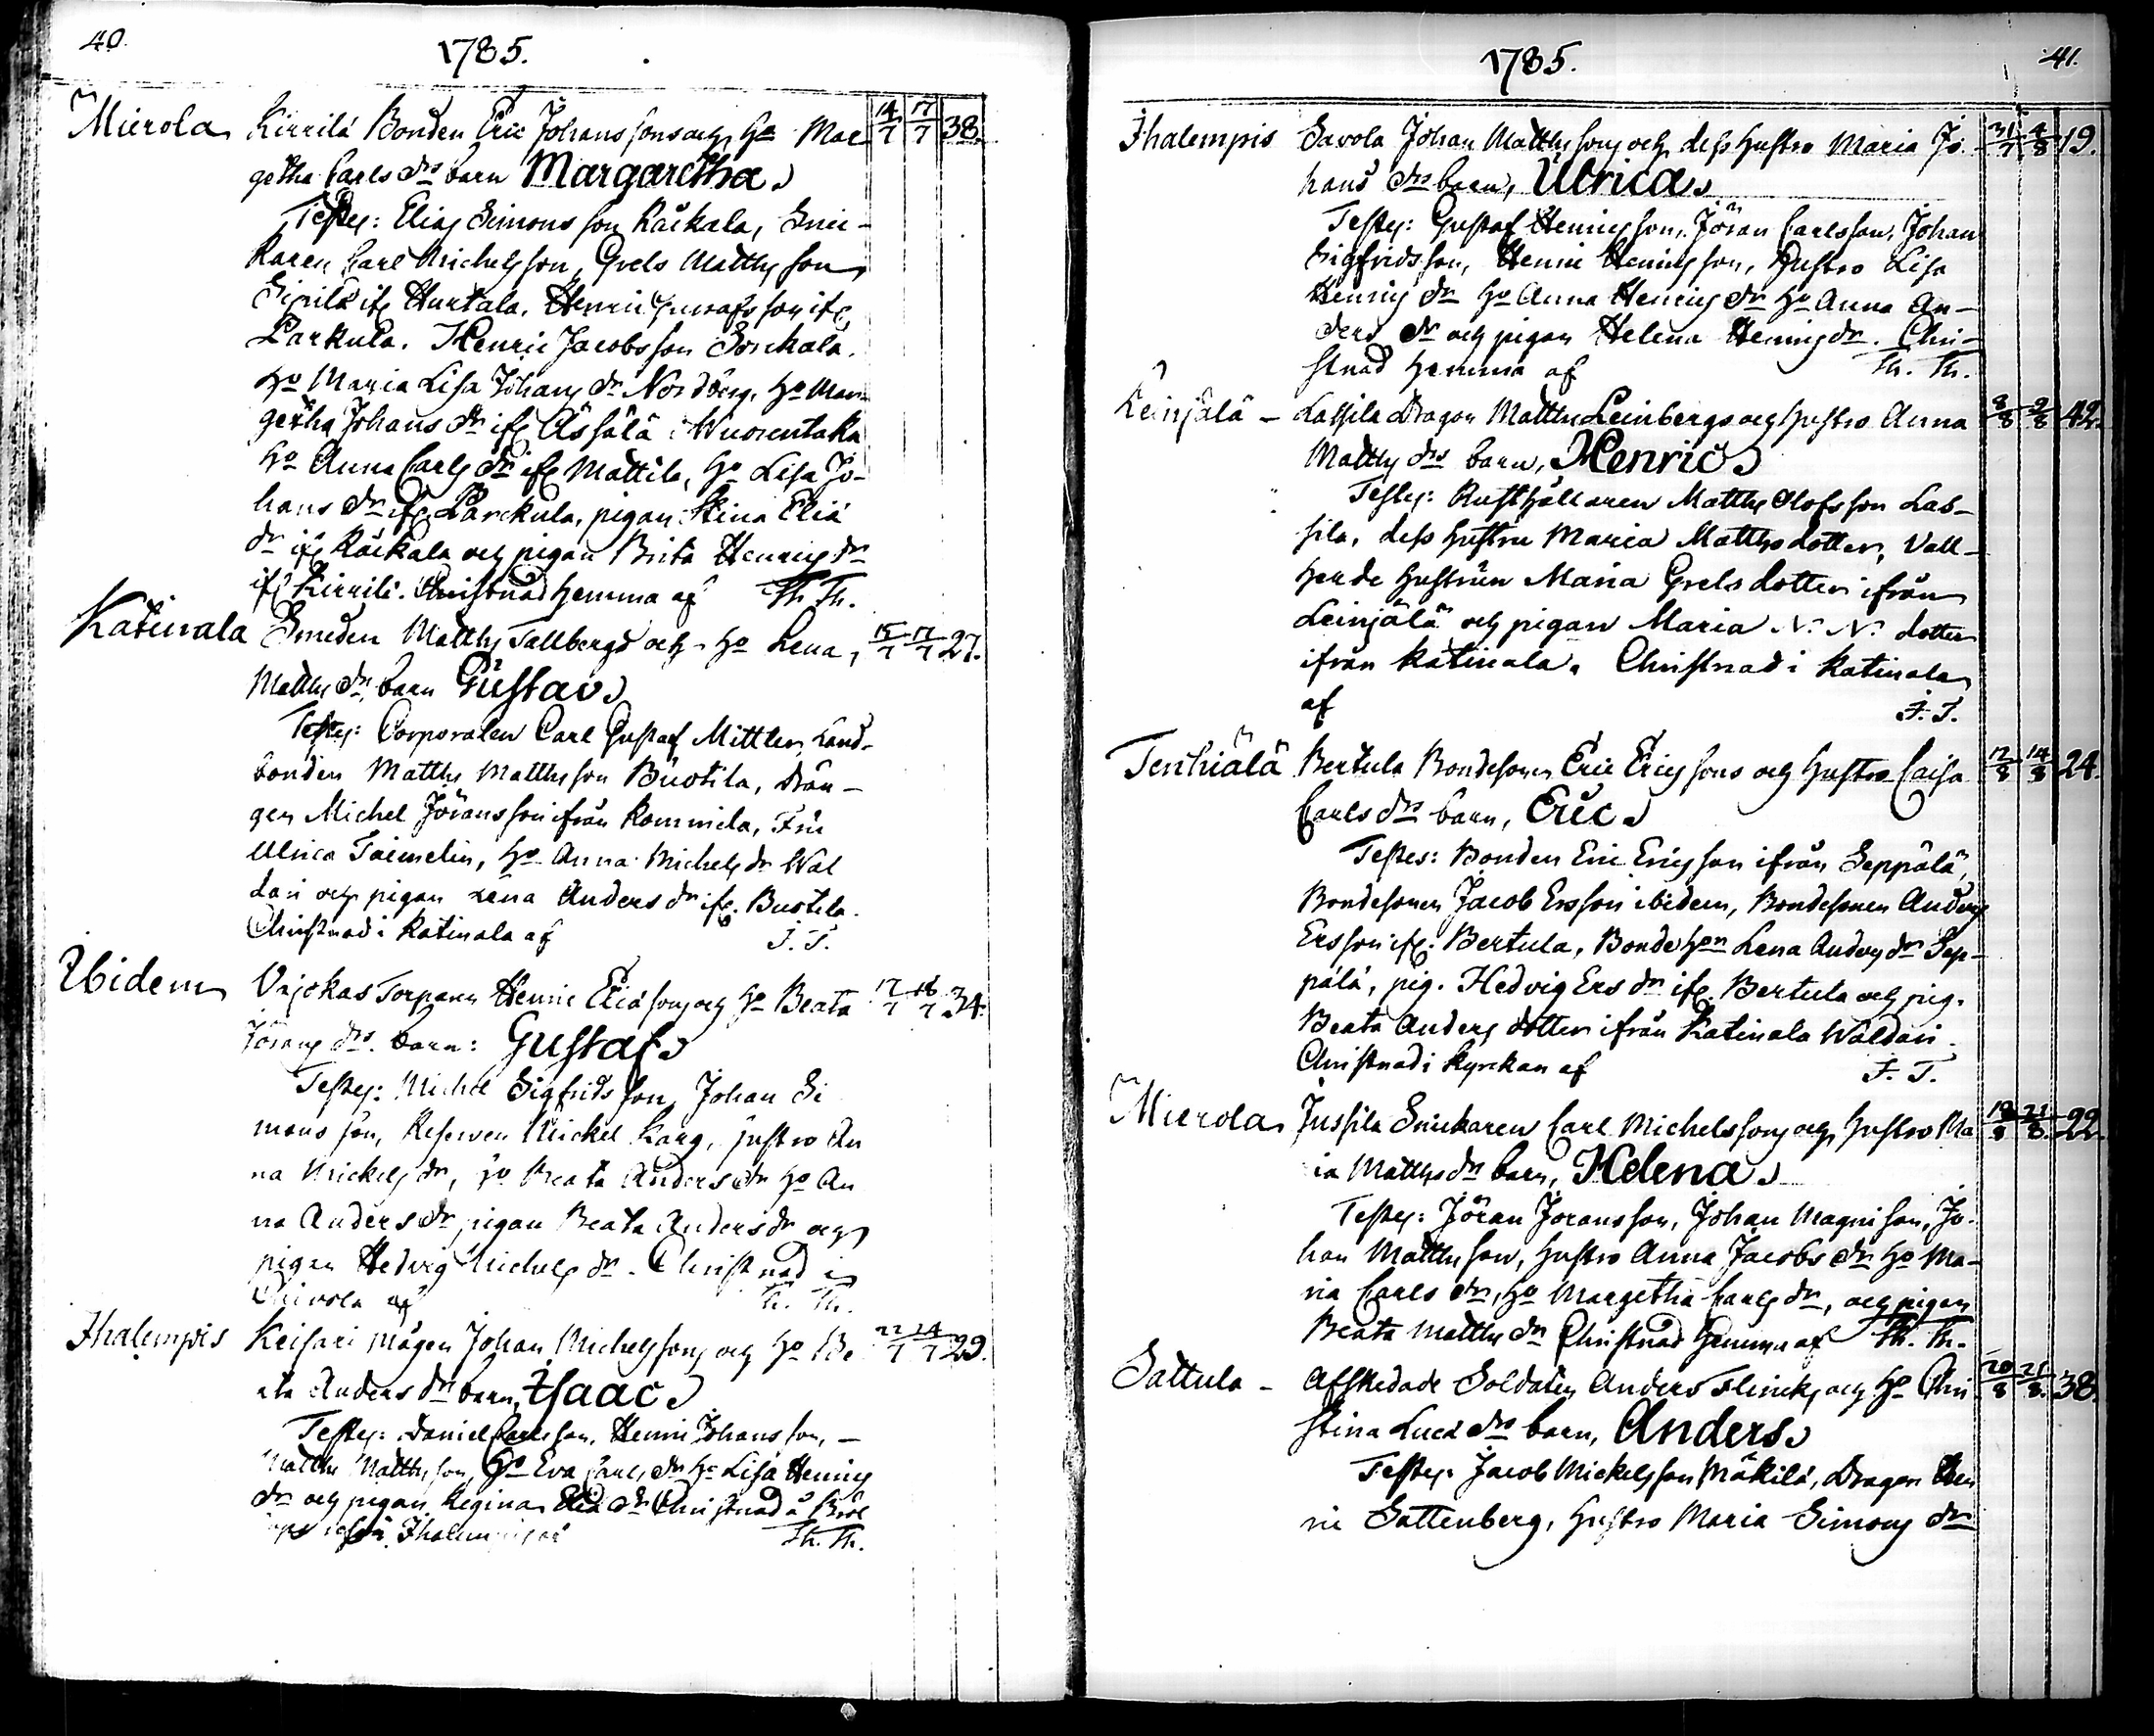 40.
1785.
Mierola Kirrilä Bonden Eric Johanssons och Ho Mar- 14/7 17/7 38.
getha Carls drs barn Margaretha.
Testes: Elias Simonsson Räikala, Snic-
karen Carl Michelsson, Grels Matthsson
Sipilä ifr Hurtala, Henric Gustafsson ifr
Parkula. Henric Jacobsson
Ho Maria Lisa Johans dr Nordberg, Ho Mar-
getha Johans dr ifr Ässälä i Wuorentaka
Ho Anna Carls dr ifr Mattila, Ho Lisa Jo-
hans dr ifr Parckula, pigan Stina Eliä
dr ifr Räikala och pigan Brita Henrics dr
ifr Kirrilä. Christnad hemma af Th. Th.
Katinala Smeden Matths Tallbergs och Ho Lena 15/7 17/7 27.
Matths drs barn Gustav
Testes: Corporalen Carl Gustaf Mittler, Land-
bonden Matths Matthsson Buotila, Drän-
gen Michel Jöransson ifrån Rommila, Fru
Ulrica Taimelin, Ho Anna Michels dr Wäl
dari och pigan Lena Anders dr ifr Buotila.
Christnad i Katinala af J. T.
Ibidem Torparen Henric Eliä sons och Ho Beata 17/7 18/7 34.
Jörans drs barn: Gustaf
Testes: Michel Sigfridsson, Johan Si
mons son, Reserven Mickel Karg, hustro An
na Mickels dr, Ho Beata Anders dr Ho An
na Anders dr, pigan Beata Anders dr och
pigan Hedvig Michels dr. Christnad i
af Th. Th.
Ihalempis Keisari mågen Johan Michelssons och Ho Be 22/7 24/7 29.
ata Anders drs barn, Isaac
Testes: Daniel Carlsson, Henric Johansson, –
Matths Matthsson, Ho Eva Carls dr Ho Lisa Henrics
dr och pigan Regina Eliä dr Christnad å
Th. Th.
1785.
41.
Ihalempis Savola Johan Matthssons och dess hustro Maria Jo- 31/7 4/8 19.
hans drs barn, Ulrica
Testes: Gustaf Henricsson, Jöran Carlsson, Johan
Sigfridsson, Henric Henricsson, Hustro Lisa
Henrics dr Ho Anna Henrics dr Ho Anna An-
ders dr och pigan Helena Henrics dr. Chri-
stnad hemma af Th. Th.
Leinjälä – Lassila Dragon Matths Leinbergs och hustro Anna 8/8 9/8 42.
Matths drs barn, Henric
Testes: Rusthållaren Matths Olofsson Las-
sila, dess hustru Maria Matthsdotter, Vall-
herde hustrun Maria Grelsdotter ifrån
Leinjälä och pigan Maria N. N. dotter
ifrån Katinala. Christnad i Katinala
af J. T.
Tenhiälä Bertula Bondesonen Eric Ericssons och hustro Caisa 12/8 14/8 24.
Carls drs barn, Eric
Testes: Bonden Eric Ericsson ifrån Seppälä,
Bondesonen Jacob Ersson ibidem, Bondesonen Anders
Ersson ifr. Bertula, Bonde hon Lena Anders dr Sep-
pälä, pig. Hedvig Ers dr ifr. Bertula och pig.
Beata Anders dotter ifrån Katinala Wäldari.
Christnad i Kyrckan af J. T.
Mierola Jussila Snickaren Carl Michelssons och hustro Ma 19/8 21/8 22.
ia Matths drs barn, Helena
Testes: Jöran Joransson, Johan Magnison, Jo-
han Matthsson, hustro Anna Jacobs dr Ho Ma-
ria Carls dr, Ho Margetha Carls dr, och pigan
Beata Matths dr Christnad hemma af Th. Th.
Sattula – Afskedade Soldaten Anders Flincks och Ho Chri 20/8 21/8 38.
stina Lucä drs barn, Anders
Testes. Jacob Mickelsson Mäkilä, Dragon Hen
ric Sattenberg, hustro Maria Simons dr